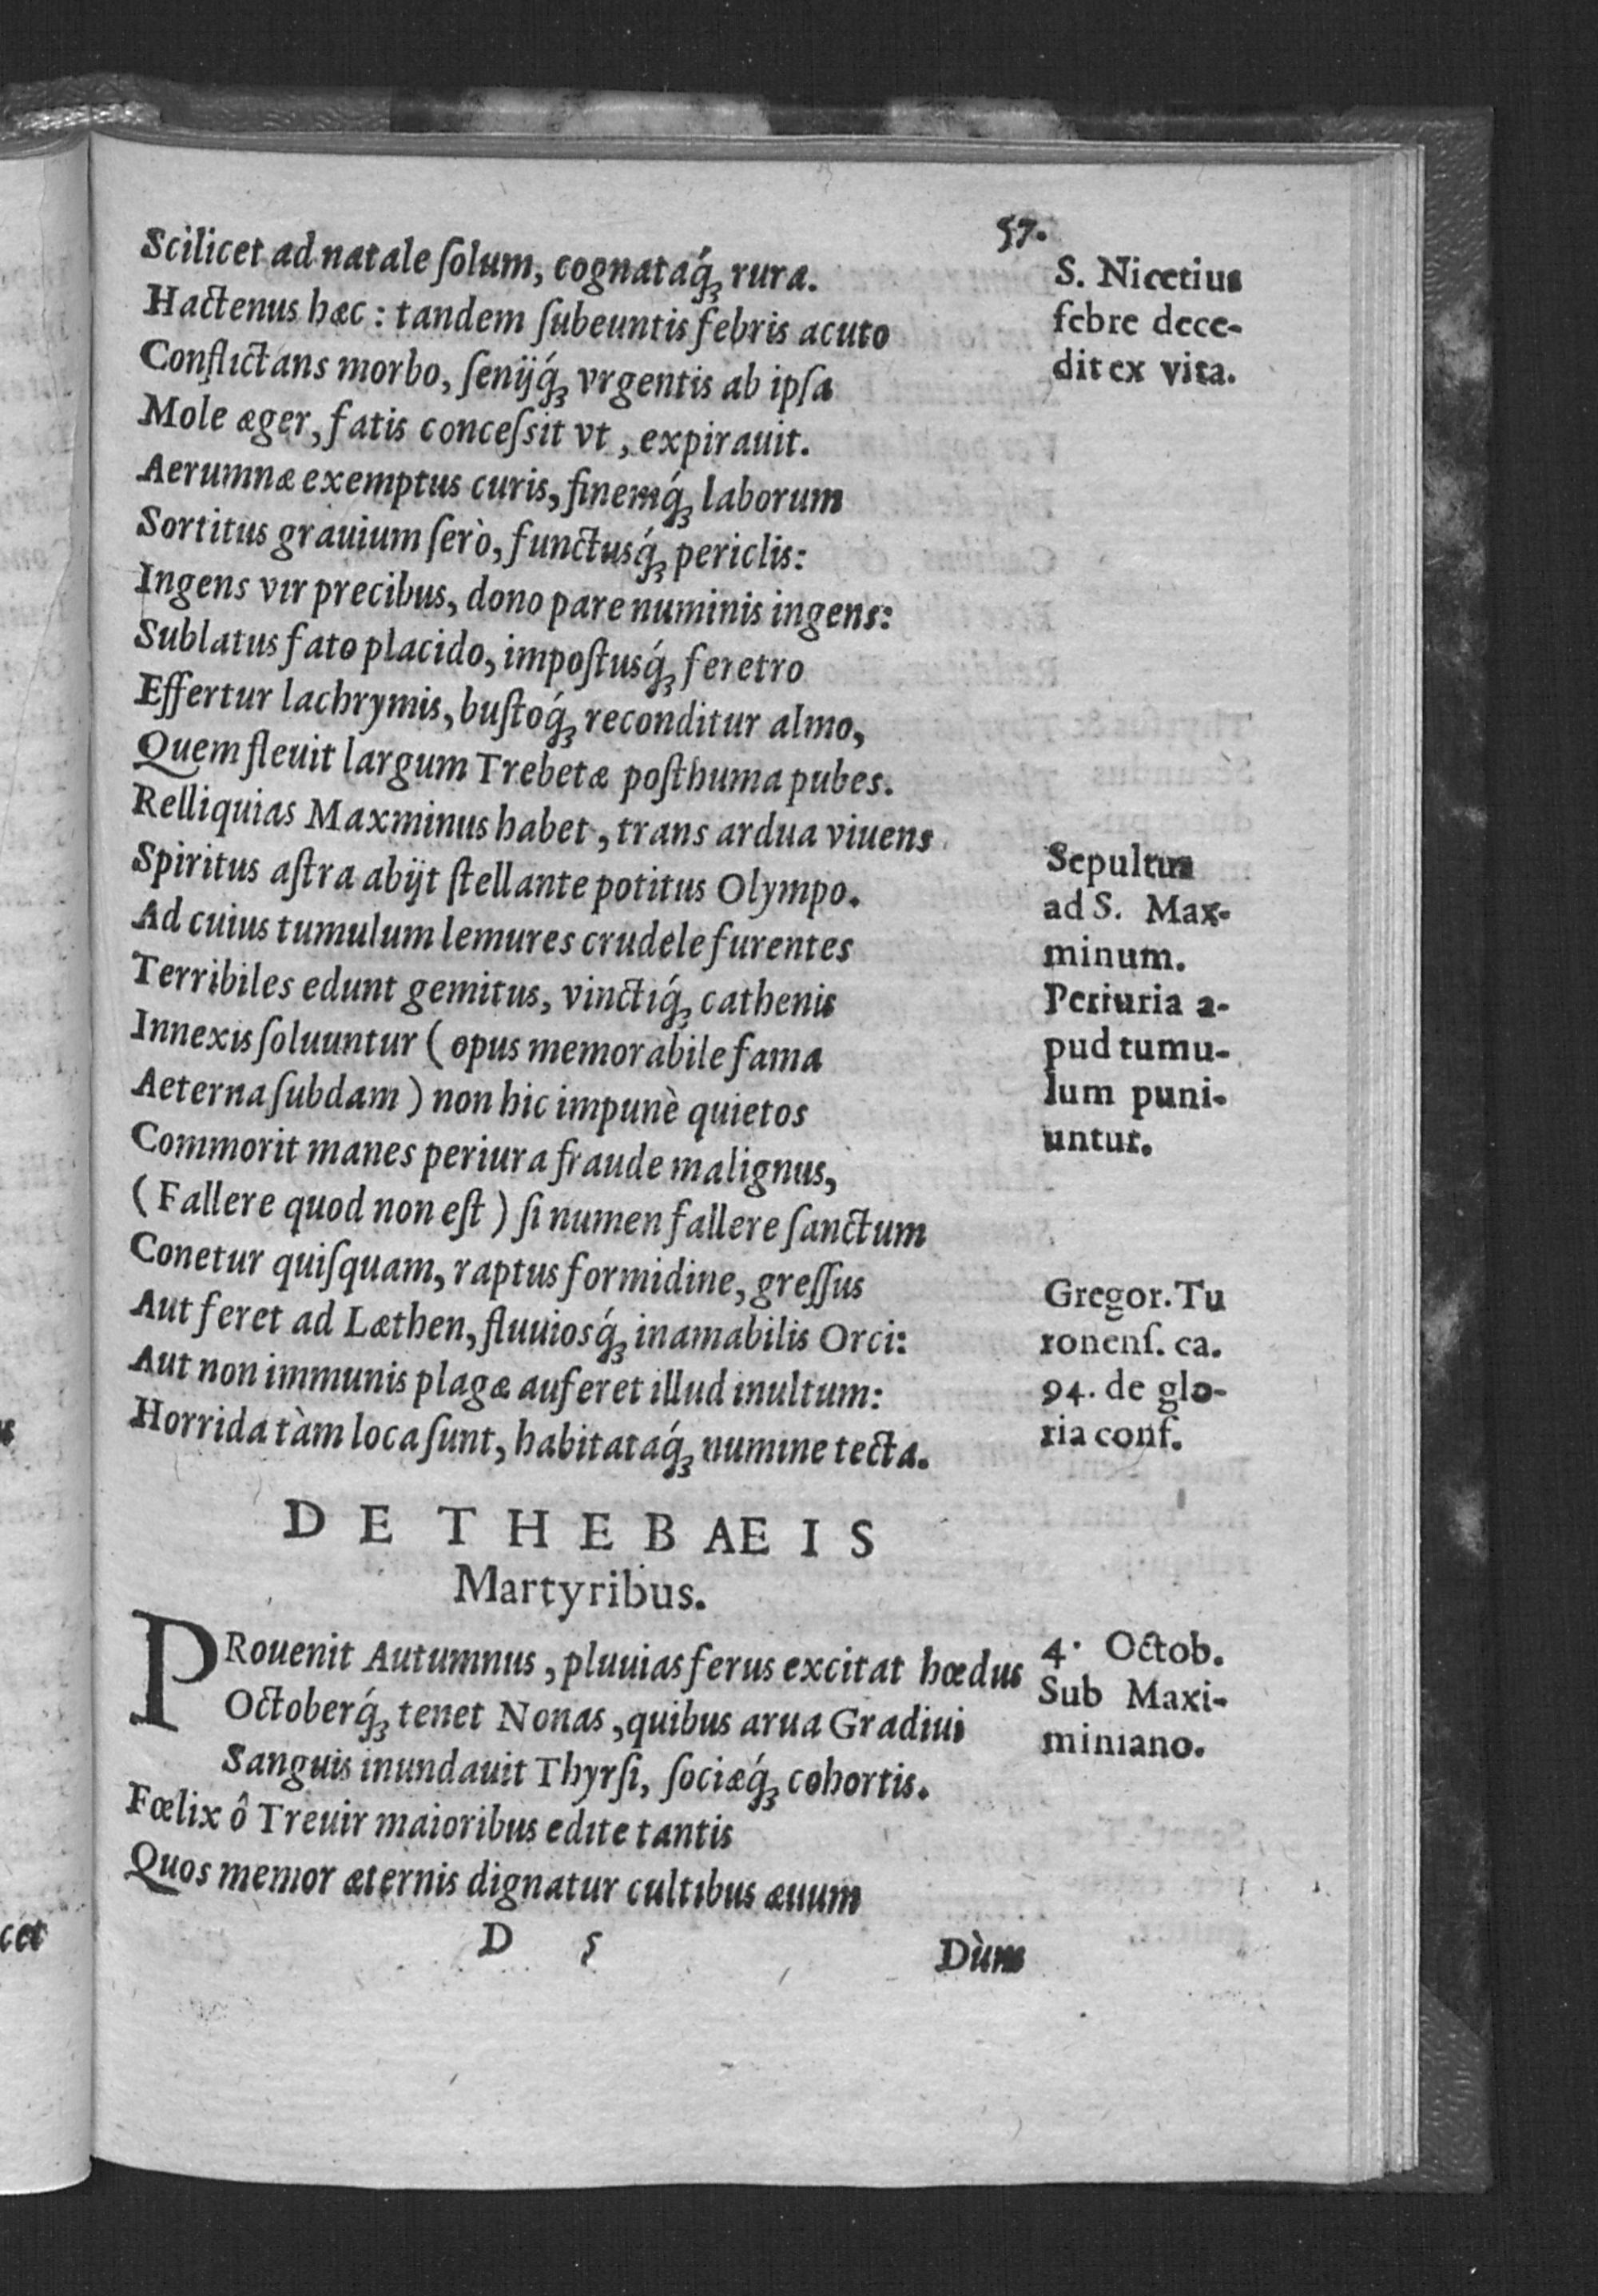 57.
Scilicet ad natale ſolum, cognataq́ꝫ rura.
Hactenus hæc : tandem ſubeuntis febris acuto
Conflictans morbo, ſenijq́ꝫ vrgentis ab ipſa
Mole æger, fatis conceſsit vt, expirauit.
Aerumnæ exemptus curis, finemq́ꝫ laborum
Sortitus grauium ſerò, functusq́ꝫ periclis:
Ingens vir precibus, dono pare numinis ingens:
Sublatus fato placido, impoſtusq́ꝫ feretro
Effertur lachrymis, buſtoq́ꝫ reconditur almo,
Quem fleuit largum Trebetæ poſthuma pubes.
Relliquias Maxminus habet, trans ardua viuens
Spiritus aſtra abijt ſtellante potitus Olympo.
Ad cuius tumulum lemures crudele furentes
Terribiles edunt gemitus, vinctiq́ꝫ cathenis
Innexis ſoluuntur ( opus memorabile fama
Aeterna ſubdam ) non hic impunè quietos
Commorit manes periura fraude malignus,
( Fallere quod non eſt ) ſi numen fallere ſanctum
Conetur quiſquam, raptus formidine, greſſus
Aut feret ad Læthen, fluuiosq́ꝫ inamabilis Orci:
Aut non immunis plagæ auferet illud inultum:
Horrida tàm loca ſunt, habitataq́ꝫ numine tecta.
S. Nicetius
febre dece-
dit ex vita.
Sepultus
ad S. Max-
minum.
Periuria a-
pud tumu-
lum puni-
untur.
Gregor. Tu
ronenſ. ca.
94. de glo-
ria conf.
DE THEBAEIS
Martyribus.
PRouenit Autumnus, pluuias ferus excitat hœdus
Octoberq́ꝫ tenet Nonas, quibus arua Gradiui
Sanguis inundauit Thyrſi, ſociæq́ꝫ cohortis.
Fœlix ô Treuir maioribus edite tantis
Quos memor æternis dignatur cultibus æuum
4. Octob.
Sub Maxi-
miniano.
D 5
Dùm
cet